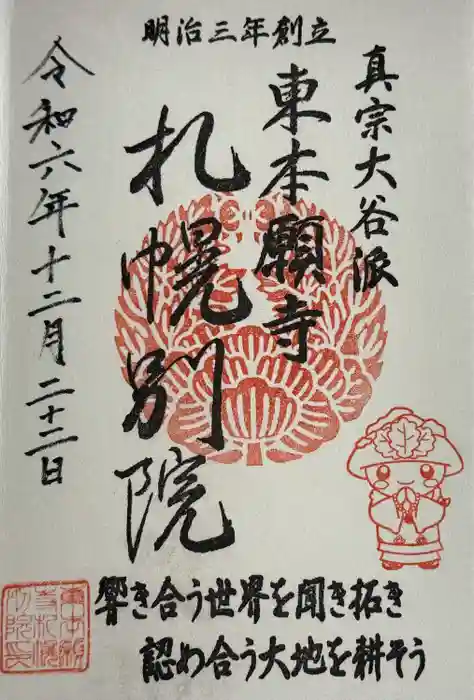 明治三年創立
真宗大谷派
東本願寺
札幌別院
令和六年十二月二十二日
響き合う世界を聞き拓き
認め合う大地を耕そう